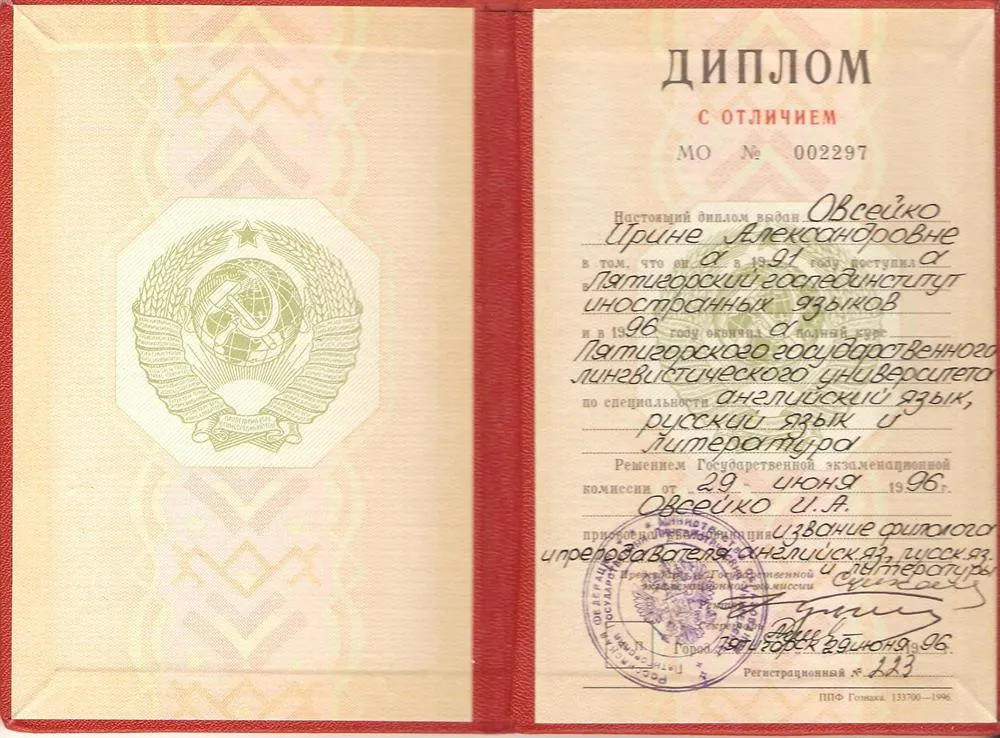 ДИПЛОМ
С ОТЛИЧИЕМ
МО № 002297
Настоящий диплом выдан Овсейко
Ирине Александровне
в том, что он а в 1991 году поступил а
в Пятигорский госпединститут
иностранных языков
и в 1996 году окончил а полный курс
Пятигорского государственного
лингвистического университета
по специальности английский язык,
русский язык и
литература
Решением Государственной экзаменационной
комиссии от 29 июня 1996 г.
Овсейко И.А.
присвоена квалификация и звание филолога
и преподавателя английск. яз, русск. яз.
и литературы
Председатель Государственной
экзаменационной комиссии
Ректор
Секретарь
Город Пятигорск 29 июня 1996 г.
Регистрационный № 223
ППФ Гознака. 133700—1996.